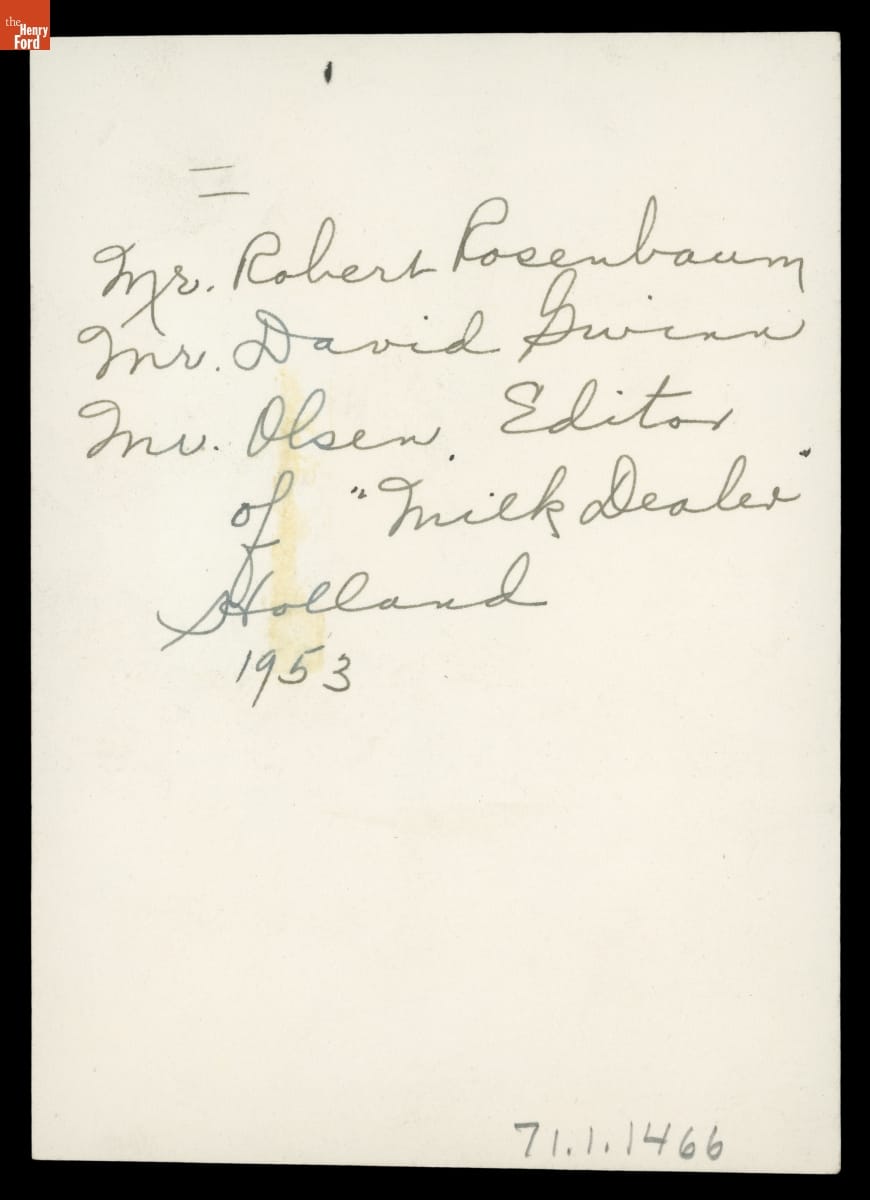 the
Henry
Ford
Mr. Robert Rosenbaum
Mr. David Gwinn
Mr. Olsen. Editor
of "Milk Dealer"
Holland
1953
71.1.1466